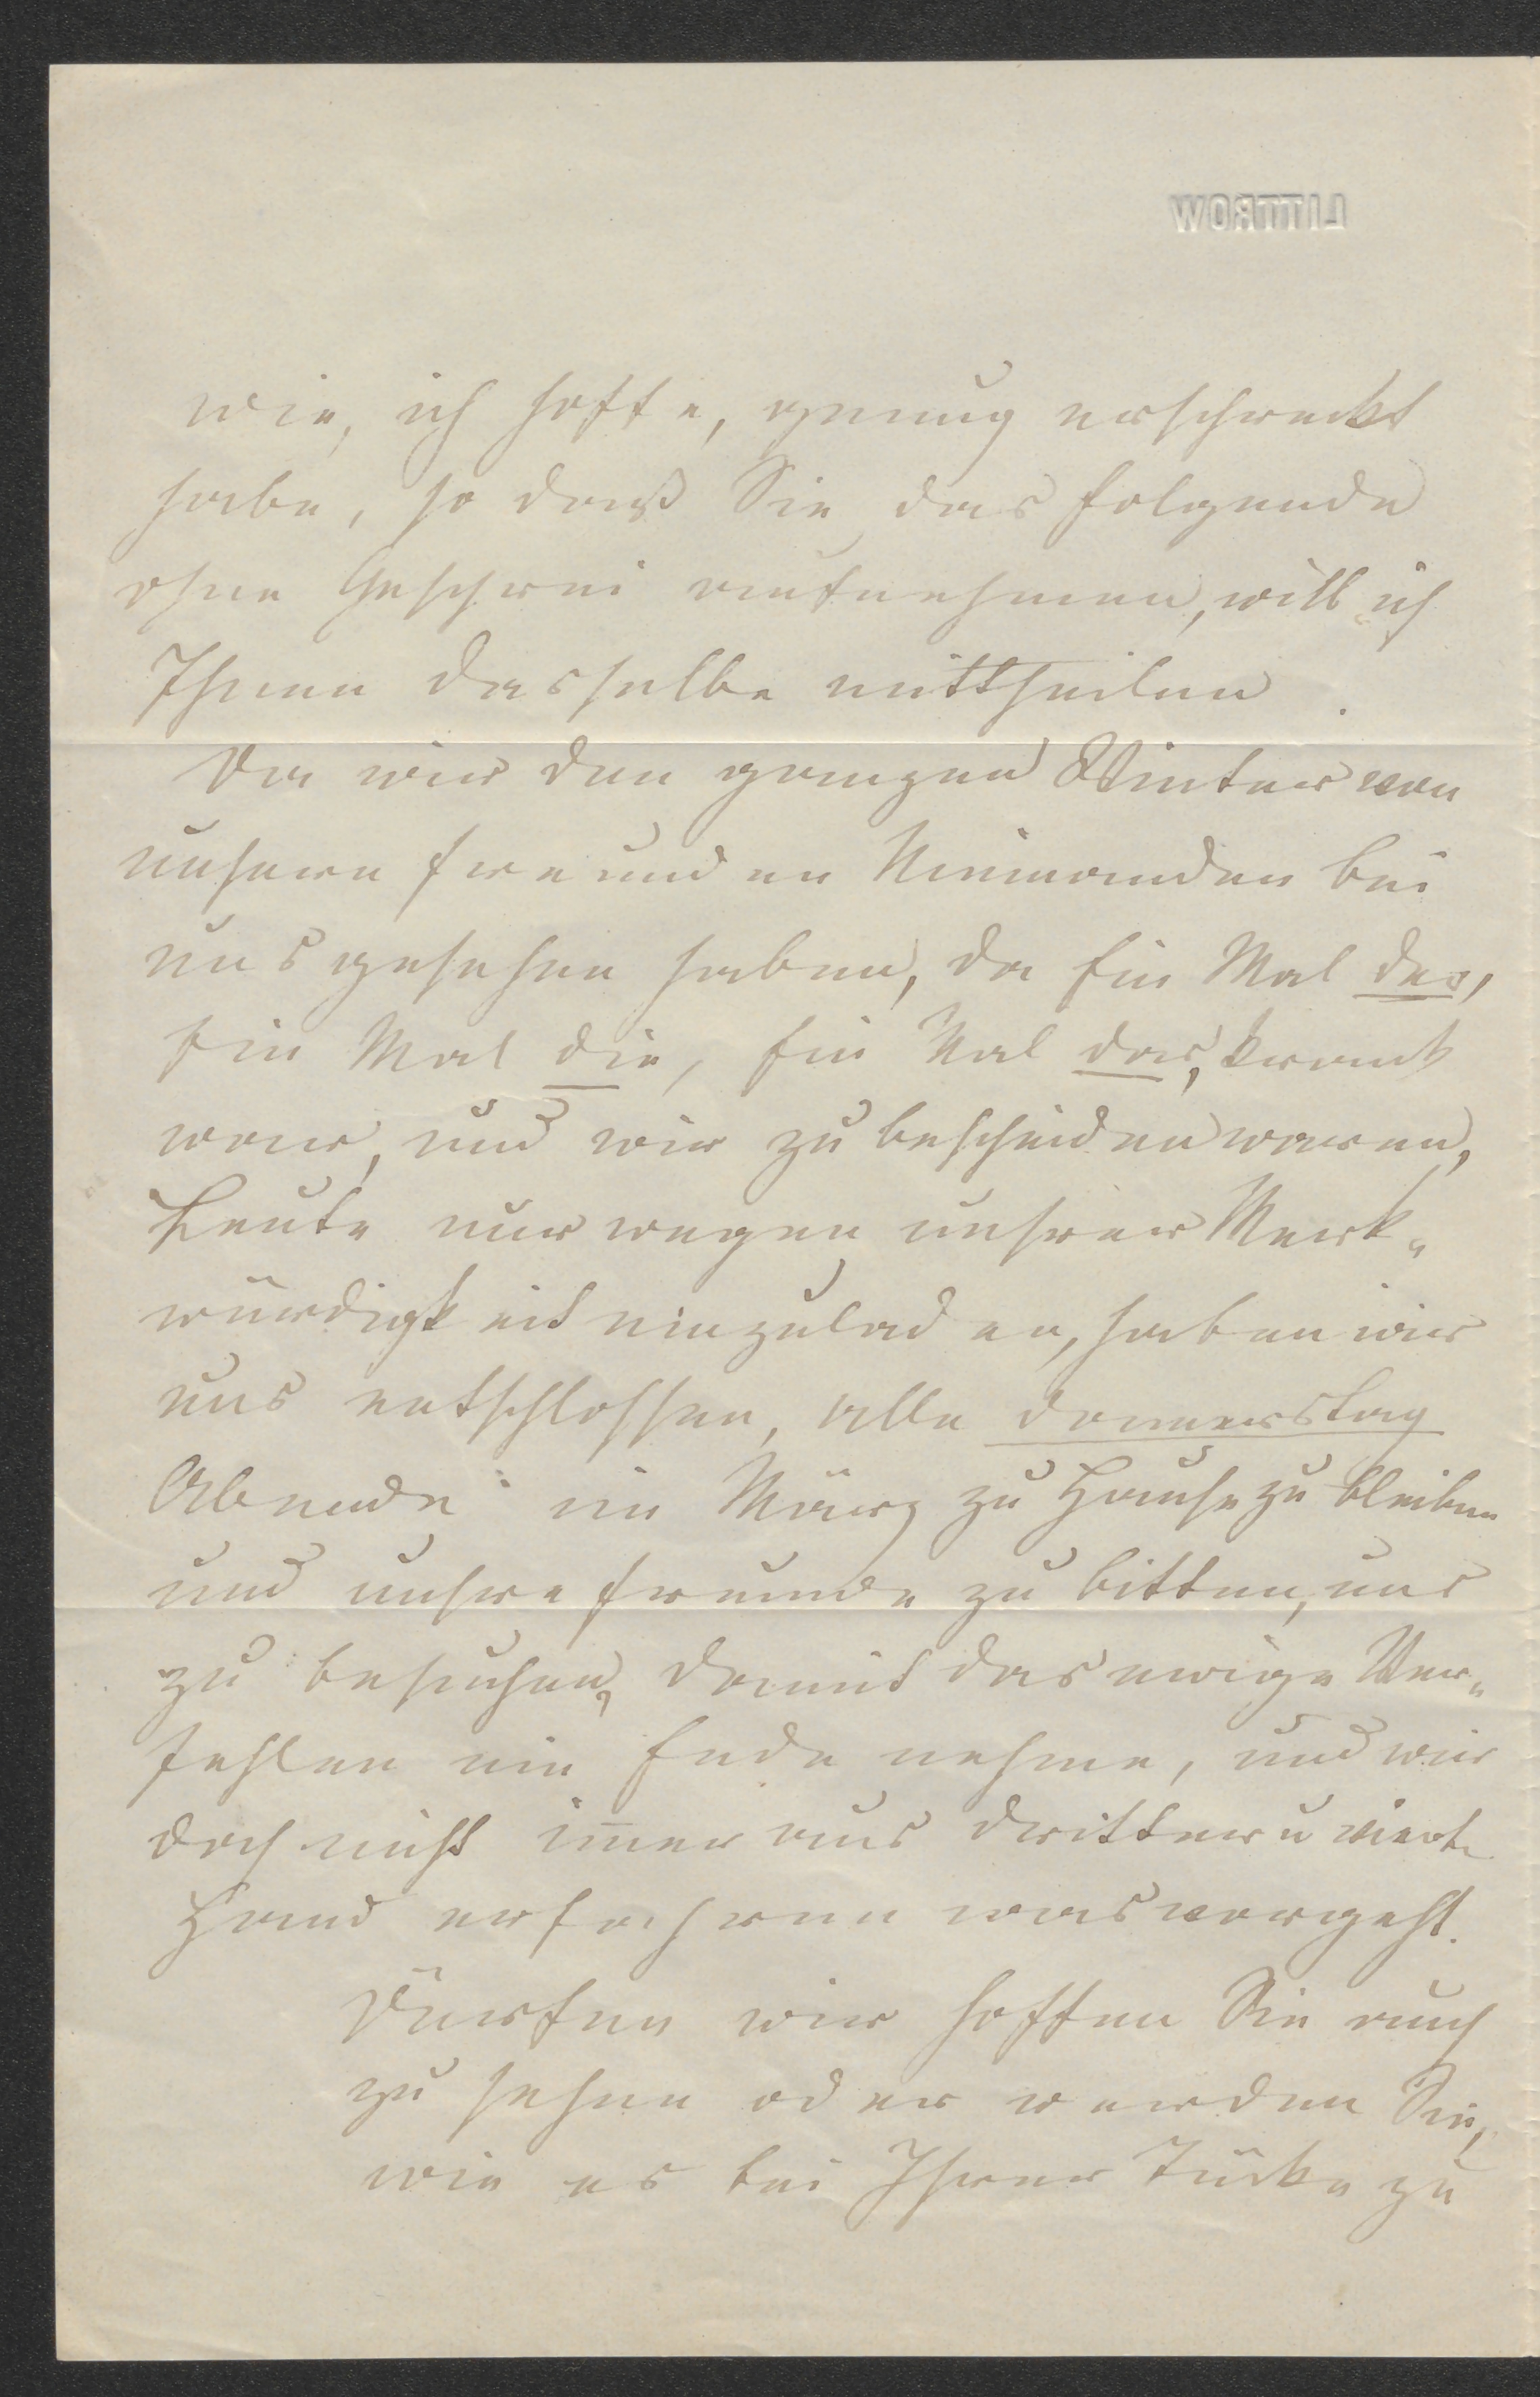 LITTROW
wie, ich hoffe, genug erschreckt
habe, so daß Sie das folgende
ohne Geschrei aufnehmen, will ich
Ihnen dasselbe mittheilen.
Da wir den ganzen Winter von
unsern Freunden Niemanden bei
uns gesehen haben, da Ein Mal der,
Ein Mal die, Ein Mal das, krank
war, und wir zu bescheiden waren,
Leute nur wegen unsrer Merk-
würdigkeit einzuladen, haben wir
uns entschlossen, alle Donnerstag
Abende im März zu Hause zu bleiben
und unsre Freunde zu bitten, uns
zu besuchen, damit das ewige Ver-
fehlen ein Ende nehme, und wir
doch nicht immer aus dritter u vierte
Hand erfahren was vorgeht.
Dürfen wir hoffen Sie auch
zu sehen oder werden Sie,
wie es bei Ihrer Tücke zu